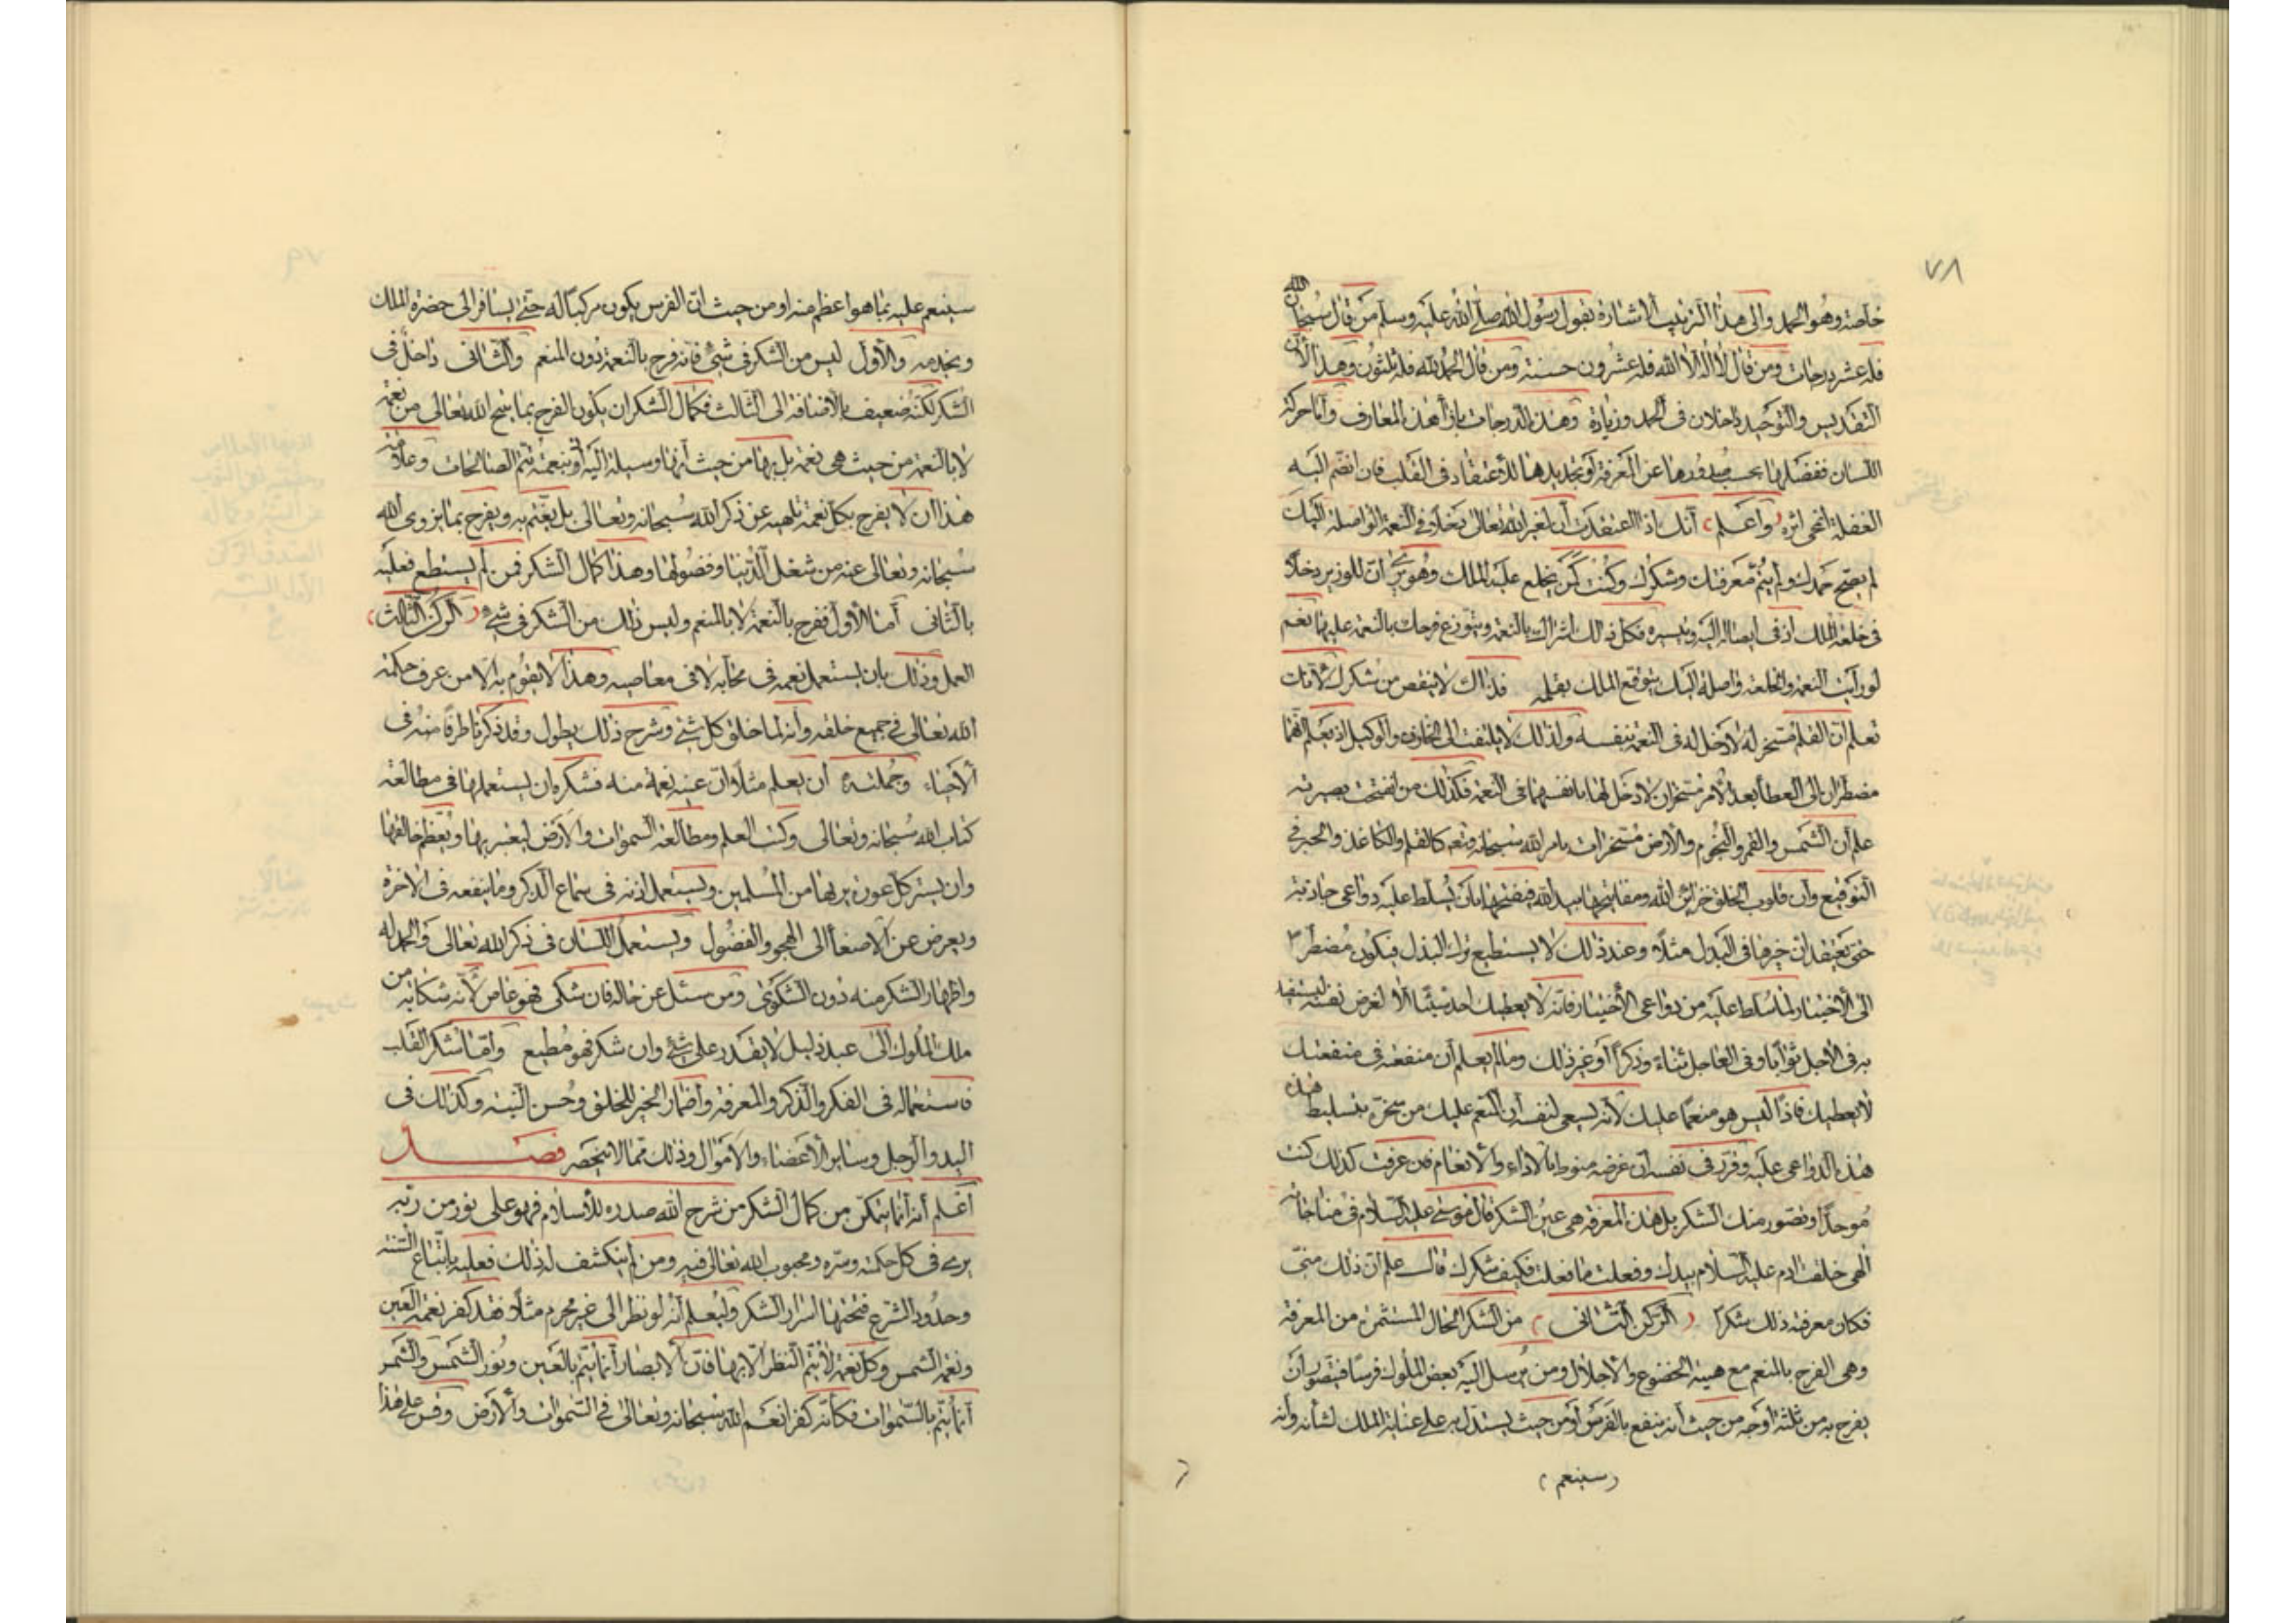 ٧٨
خاصة وهو الحمد والى هذا الترتيب الاشارة بقول رسول الله صلى الله عليه وسلم من قال سبحان الله
فله عشر درجات ومن قال لا اله الا الله فله عشرون حسنة ومن قال الحمد لله فله ثلثون وهذا لأن
التقديس والتوحيد داخلان في الحمد وزيادة وهذه الدرجات بازآء هذه المعارف وأما حركة
اللسان ففضلها بحسب صدورها عن المعرفة أو تجديدها للاعتقاد في القلب فان انضم اليه
الغفلة انمحى اثره (واعلم) أنك اذا اعتقدت أن لغير الله تعالى دخلا في النعمة الواصلة اليك
لم يصح حمدك ولم يتم معرفتك وشكرك وكنت كمن يخلع عليه الملك وهو يرى ان للوزير دخلا
في خلعة الملك او في ايصالها اليه وتيسيره فكل ذلك اشراك بالنعمة ويتوزع فرحك بالنعمة عليهما نعم
لو رأيت النعمة والخلعة واصلة اليك بتوقيع الملك بقلمه فذاك لا ينقص من شكرك لانك
تعلم ان القلم مسخر له لا دخل له في النعمة بنفسه ولذلك لا يلتفت الى الخازن والوكيل اذ يعلم انهما
مضطران الى العطأ بعد الامر مسخران لا دخل لهما بانفسهما في النعمة فكذلك من انفتحت بصيرته
علم أن الشمس والقمر والنجوم والأرض مسخرات بامر الله سبحانه وتعه كالقلم والكاغذ والحبر في
التوقيع وأن قلوب الخلق خزائن الله ومفاتيحها بيد الله فيفتحها بان يسلط عليه دواعي جاذبة
حتى يعتقد ان خيرها في البذل مثلا وعند ذلك لا يستطيع ترك البذل فيكون مضطرا
الى الاختيار لما سلط عليه من دواعي الأختيار فانه لا يعطيك احد شيئا الا لغرض نفسه ليستفيد
به في الاجل ثوابا وفي العاجل ثناء وذكرا أو غير ذلك وما لم يعلم أن منفعته في منفعتك
لا يعطيك فاذا ليس هو منعما عليك لأنه يسعى لنفسه أن المنعم عليك من سخره بتسليط هذه
هذه الدواعي عليه وقرر في نفسه ان غرضه منوط بالاداء والانعام فان عرفت كذلك كنت
موحدا وتصور منك الشكر بل هذه المعرفة هي عين الشكر قال موسى عليه السلام في مناجاته
الهي خلقت ادم عليه السلام بيدك وفعلت ما فعلت فكيف شكرك قال علم ان ذلك مني
فكان معرفته ذلك شكرا (الركن الثاني) من الشكر الحال المستثمرة من المعرفة
وهي الفرح بالمنعم مع هيئة الخضوع والاجلال ومن يرسل اليه بعض الملوك فرسا فيتصور أن
يفرح به من ثلثة أوجه من حيث أنه ينتفع بالفرس أو من حيث يستدل به على عناية الملك لشأنه وأنه
(سينعم)
٧٩
سينعم عليه بما هو اعظم منه او من حيث ان الفرس يكون مركبا له حتى يسافر الى حضرة الملك
ويخدمه والأول ليس من الشكر في شئ فانه فرح بالنعمة دون المنعم والثاني داخل في
الشكر لكنه ضعيف بالاضافة الى الثالث فكمال الشكر ان يكون الفرح بما يتيح الله تعالى من نعمه
لا بالنعمة من حيث هي نعمة بل بها من حيث أنها وسيلة اليه اذ بنعمته تتم الصالحات وعلامة
هذا أن لا يفرح بكل نعمة تلهيه عن ذكر الله سبحانه وتعالى بل يغتم به ويفرح بما يزوي الله
سبحانه وتعالى عنه من شغل الدنيا وفضولها وهذا كمال الشكر فمن لم يستطع فعليه
بالثاني أما الأول ففرح بالنعمة لا بالمنعم وليس ذلك من الشكر في شئ (الركن الثالث)
العمل وذلك بان يستعمل نعمه في محابه لا في معاصيه وهذا لا يقوم به الا من عرف حكمة
الله تعالى في جميع خلقه وأنه لما خلق كل شئ وشرح ذلك يطول وقد ذكرنا طرفا منه في
الأحياء وجملته أن يعلم مثلا ان عينه نعمة منه فشكره ان يستعملها في مطالعة
كتاب الله سبحانه وتعالى وكتب العلم ومطالعة السموات والأرض ليعتبر بها ويعظم خالقها
وان يستر كل عورة يريها من المسلمين ويستعمل اذنه في سماع الذكر وما ينفعه في الاخرة
ويعرض عن الاصغأ الى الهجو والفضول ويستعمل اللسان في ذكر الله تعالى والحمد له
واظهار الشكر منه دون الشكوى ومن سئل عن حاله فان شكى فهو عاص لأنه شكاية من
ملك الملوك الى عبد ذليل لا يقدر على شئ وان شكر فهو مطيع وأما شكر القلب
فاستعماله في الفكر والذكر والمعرفة وأضمار الخير للخلق وحسن النية وكذلك في
اليد والرجل وسائر الأعضاء والاموال وذلك مما لا ينحصر فصل
أعلم أنه أنما يتمكن من كمال الشكر من شرح الله صدره للاسلام فهو على نور من ربه
يرى في كل حكمته وسره ومحبوب الله تعالى فيه ومن لم ينكشف له ذلك فعليه باتباع السنة
وحدود الشرع فتحتها اسرار الشكر وليعلم أنه لو نظر الى غير محرم مثلا فقد كفر نعمة العين
ونعمة الشمس وكل نعمة لا يتم النظر الا بها فان الابصار أنما يتم بالعين ونور الشمس والشمس
أنما يتم بالسموات فكأنه كفر انعم الله سبحانه وتعالى في السموات والأرض وقس على هذا